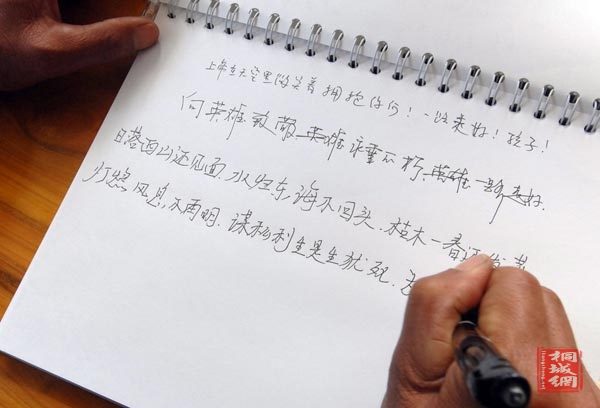 上帝在天空里微笑着拥抱你们！一路走好！孩子！
向英雄致敬 英雄永垂不朽、英雄一路走好.
日落西山还见面.水归东海不回头.植木一春还发芽
灯熄风息,不再明.谋私利生是生犹死.
桐城網